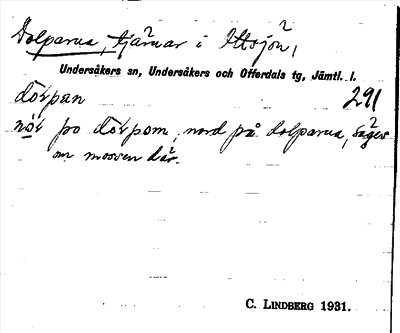 Dolparna, tjärnar i Ottsjön,
Undersåkers sn, Undersåkers och Offerdals tg, Jämtl. l.
dörpan 291
nör po dörpom, nord på dolparna, säges
om mossven där.
C. LINDBERG 1931.